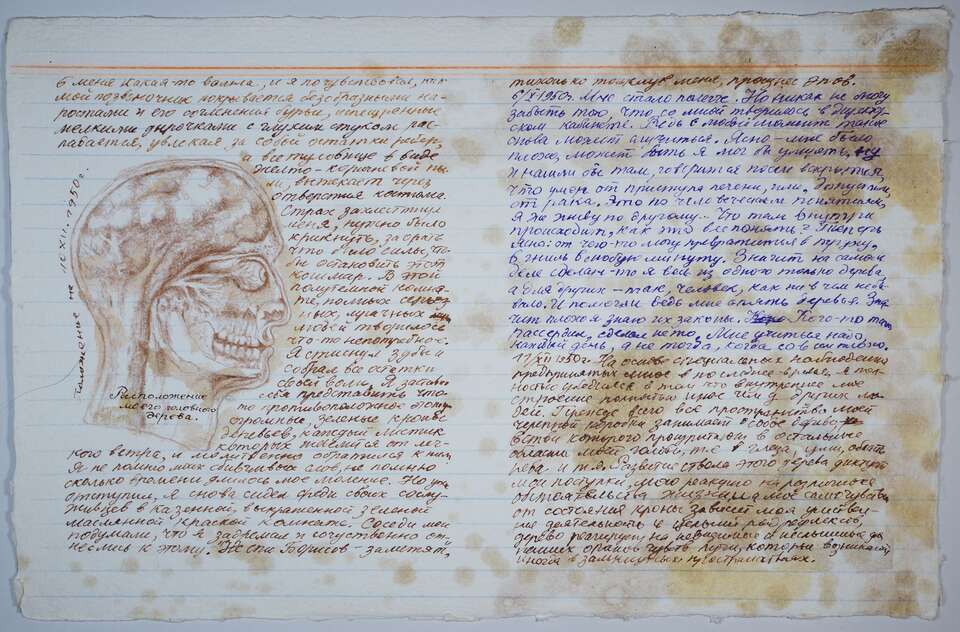 в меня какая-то волна, и я почувствовал, как
мой позвоночник покрывается безобразными на-
ростами и его сочленения бурые, испещренные
мелкими дырочками с глухим стуком рас-
падается, увлекая за собой остатки ребер,
и все туловище в виде
желто-коричневой пы-
ли, вытекает через
отверстия костюма.
Страх захлестнул
меня, нужно было
крикнуть, заорать
что было силы, что-
бы остановить этот
кошмар. В этой
полутемной комна-
те, полных серьез-
ных, мрачных
людей творилось
что-то непотребное.
Я стиснул зубы и
собрал все остатки
своей воли. Я заставил
себя представить что-
то противоположное этому
огромные зеленые кроны
деревьев, каждый листик
которых шевелится от лег-
кого ветра, и молитвенно обратился к ним
Я не помню моих сбивчивых слов, не помню
сколько времени длилось мое моление. Но ужас
отступил, я снова сидел среди своих сослу-
живцев в казенной, выкрашенной зеленой
маслянной краской комнате. Соседи мои
подумали, что я задремал и сочувственно от-
неслись к этому. "Не спи Борисов - заметят",
положение на 10 XII. 1950 г.
Расположение
моего головного
дерева.
тихонько толкнув меня, произнес
1950г. Мне стало полегче. Но никак не могу
забыть того, что со мной творилось в
ском кабинете. Ведь с новой силой такое
снова может случиться. Ясно - мне было
плохо, может быть я мог бы умереть,
и нашли бы там, говорится после вскрытия,
что умер от приступа печени, или, допустим,
от рака. Это по человеческим понятиям,
я же живу по другому... Что там внутри
происходит, как это все понять? Теперь
ясно: от чего-то могу превратиться в труху,
в гниль в любую минуту. Значит на самом
деле сделан-то я весь из одного только дерева,
а для других - так, человек, как ни в чем не бы-
вало. И помогли ведь мне опять деревья. Зна-
чит плохо я знаю их законы. Кого-то там
рассердил, сделал не то. Мне учиться надо,
каждый день, а не тогда, когда совсем плохо.
11/XII 1950г. На основе специальных наблюдений
предпринятых мною в последнее время, я пол-
ностью убедился в том что внутреннее мое
строение полностью иное чем у других лю-
дей. Прежде всего все пространство моей
черепной коробки занимает особое дерево,
ветви которого прорастают в остальные
области моей головы, т.е. в глаза, уши,
и т.д. Развитие ствола этого дерева диктует
мои поступки, мою реакцию на различные
обстоятельства жизни, и мое самочувствие
от состояния кроны зависит моя умствен-
ная деятельность и целый ряд
дерево реагирует на невидимые и неслышимые для
наших органов чувств лучи, которые возникают
иногда в замкнутых пространствах.